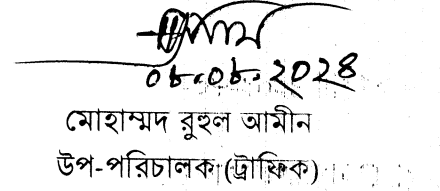 ০৮.০৮.২০২৪
মোহাম্মদ রুহুল আমীন
উপ-পরিচালক (ট্রাফিক)